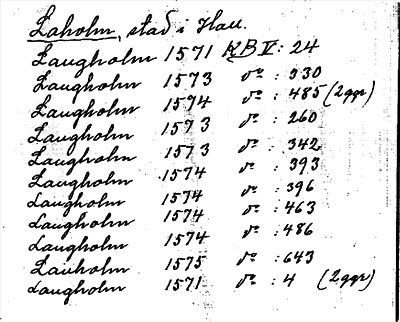 Laholm, stad i Hall.
Laugholm 1571 KB V: 24
Laugholm 1573 do : 330
Laugholm 1574 do : 485 (2 ggr)
Laugholm 1573 do : 260
Laugholm 1573 do : 342
Laugholm 1574 do : 393
Laugholm 1574 do : 396
Laugholm 1574 do : 463
Laugholm 1574 do : 486
Lauholm 1575 do : 643
Laugholm 1571 do : 4 (2 ggr)